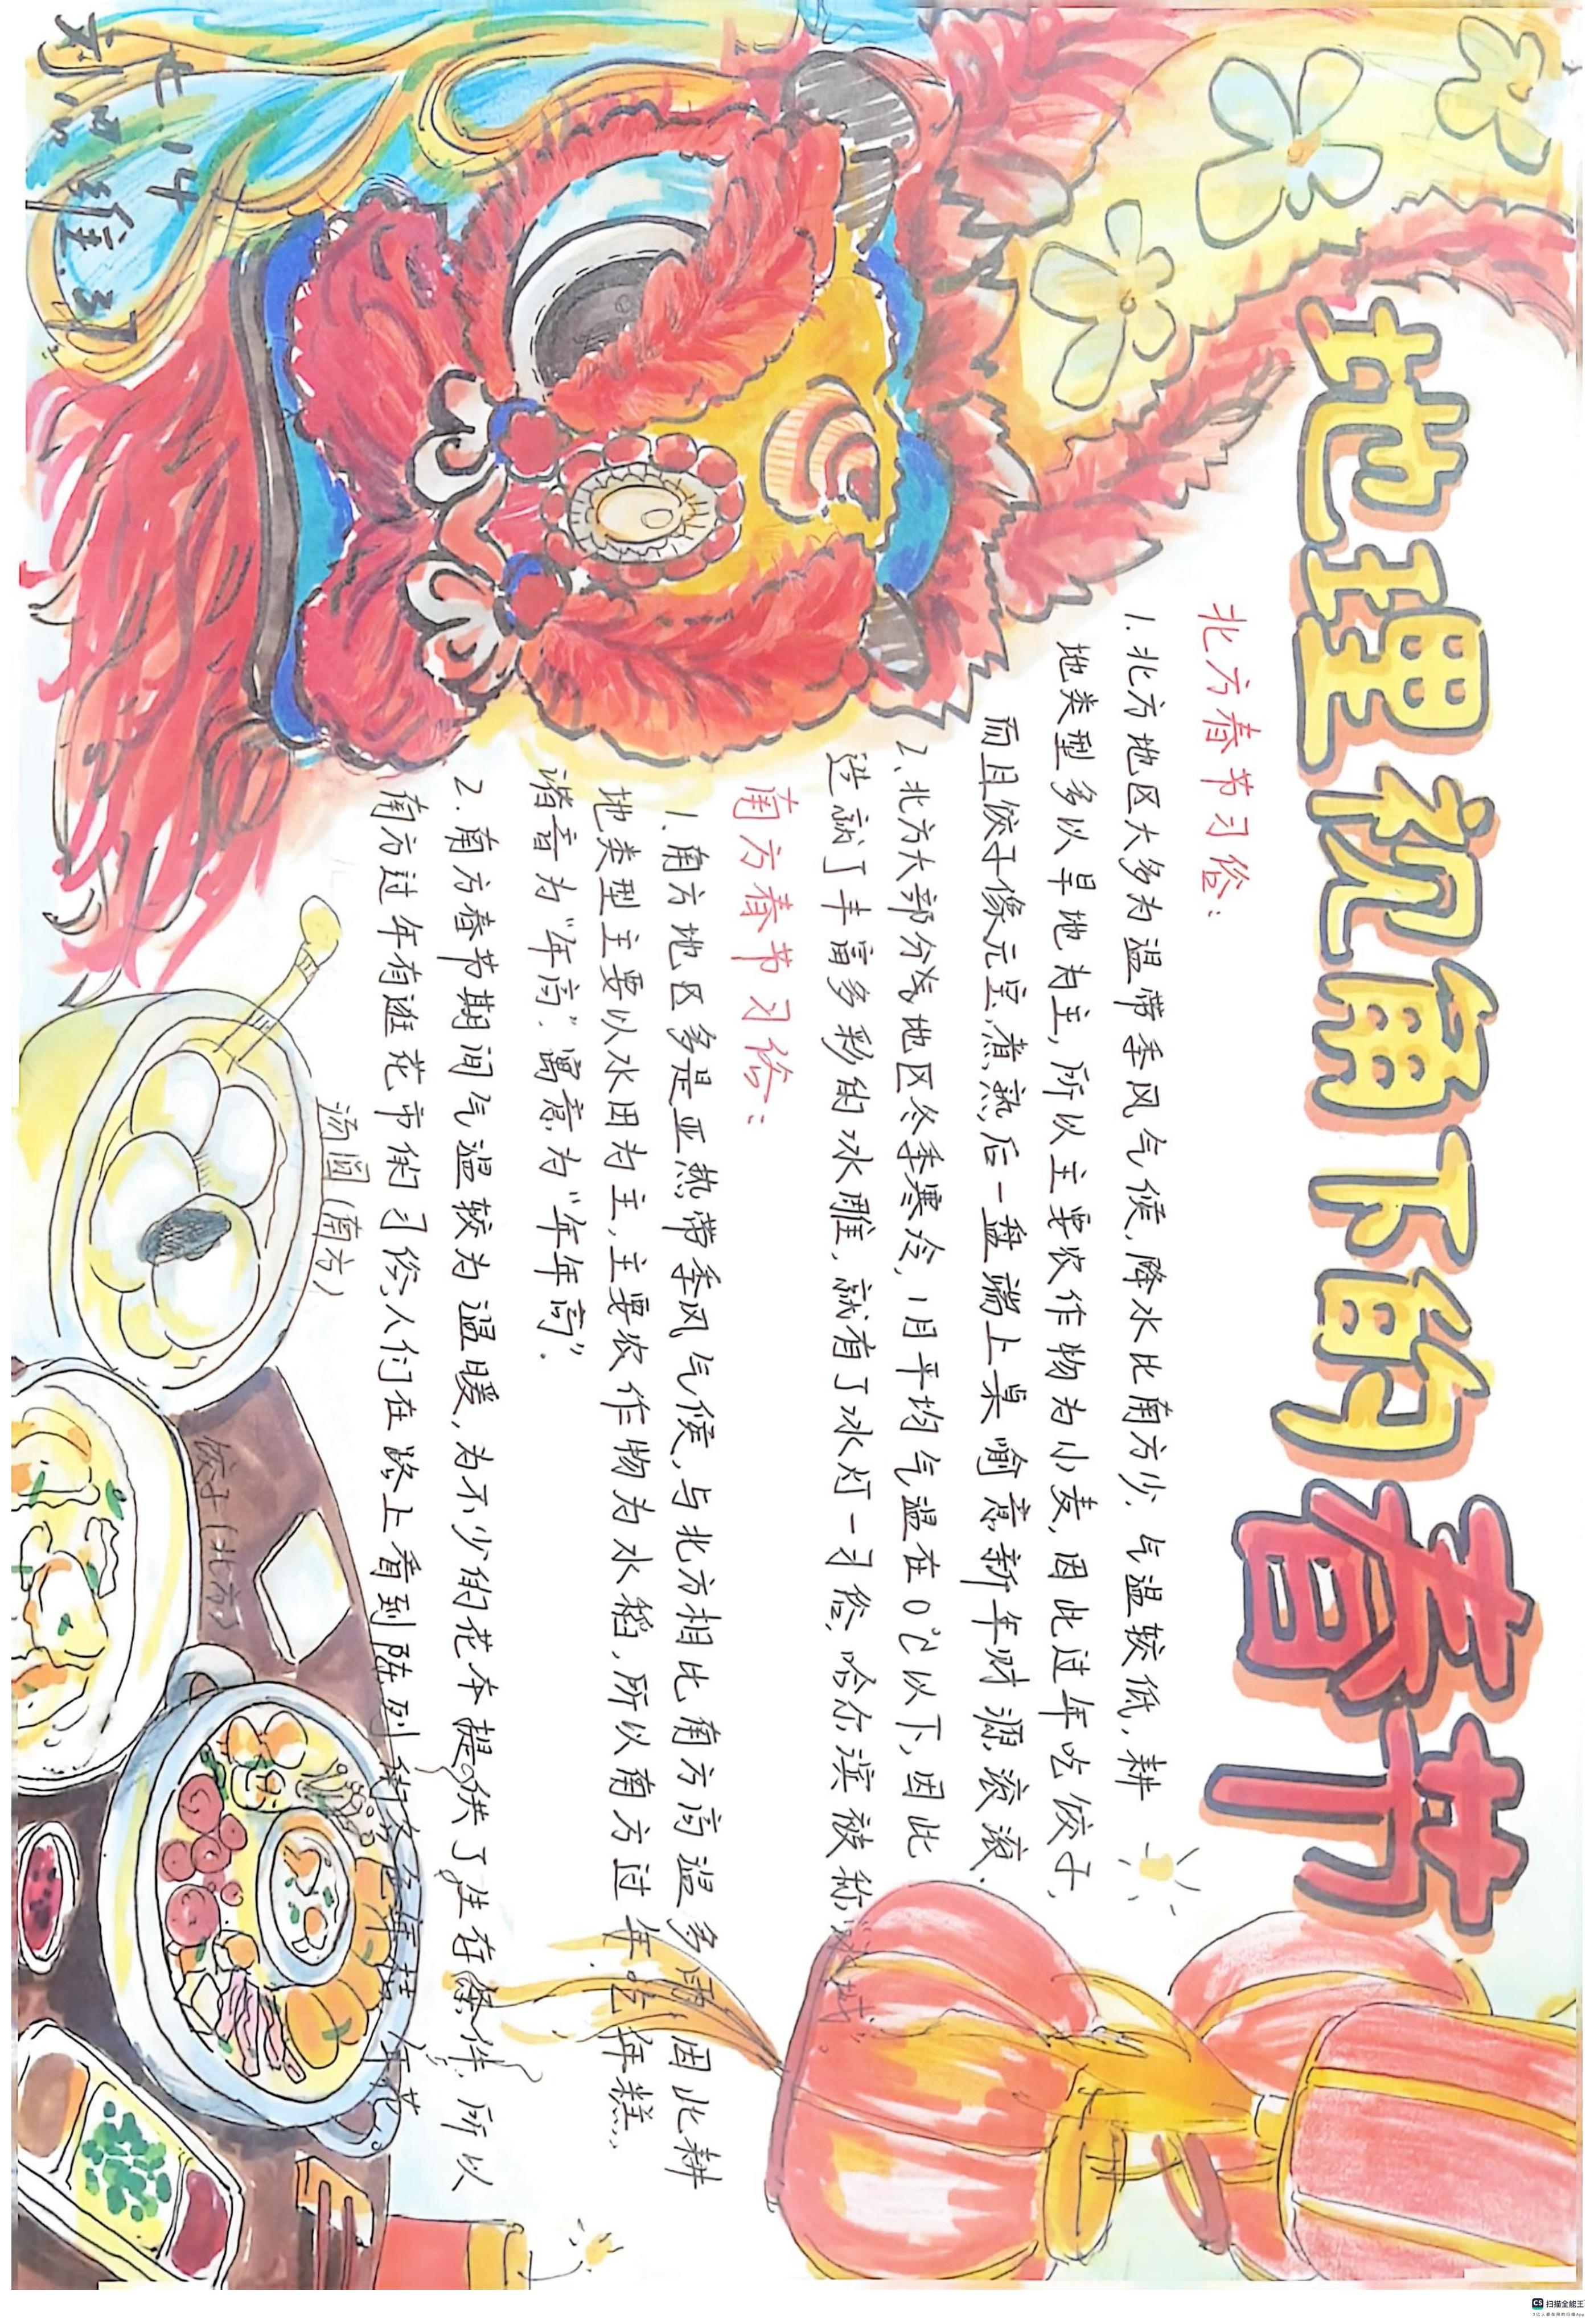 地理视角下的春节
北方春节习俗：
1.北方地区大多为温带季风气候，降水比南方少，气温较低，耕
地类型多以旱地为主，所以主要农作物为小麦，因此过年吃饺子，
而且饺子像元宝，煮熟后一盘端上桌喻意新年财源滚滚.
2.北方大部分地区冬季寒冷，1月平均气温在0℃以下，因此
造就了丰富多彩的冰雕，就有了冰灯一习俗，哈尔滨被称"冰城"
南方春节习俗：
1.南方地区多是亚热带季风气候，与北方相比南方高温多雨因此耕
地类型主要以水田为主，主要农作物为水稻，所以南方过年吃年糕，
谐音为"年高"寓意为"年年高".
2.南方春节期间气温较为温暖，为不少的花卉提供了生存条件，所以
南方过年有逛花市的习俗，人们在路上看到陈列的各年桔、年花
汤圆（南方）
饺子（北方）
七八4
CS 扫描全能王
3亿人都在用的扫描App